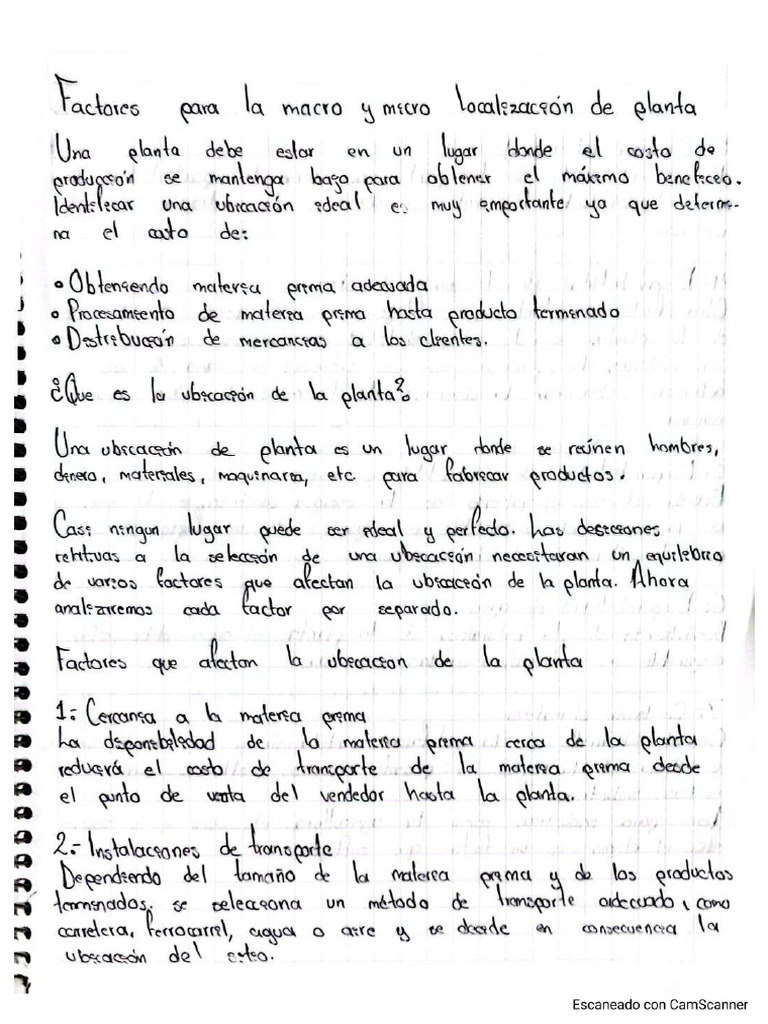 Factores para la macro y micro localización de planta
Una planta debe estar en un lugar donde el costo de
producción se mantenga bajo para obtener el máximo beneficio.
Identificar una ubicación ideal es muy importante ya que determi-
na el costo de:
• Obteniendo materia prima adecuada
• Procesamiento de materia prima hasta producto terminado
• Distribución de mercancias a los clientes.
¿Que es la ubicación de la planta?
Una ubicación de planta es un lugar donde se reúnen hombres,
dinero, materiales, maquinaria, etc. para fabricar productos.
Casi ningun lugar puede ser ideal y perfecto. Las desiciones
reltivas a la selección de una ubicación necesitaran un equilibrio
de varios factores que afectan la ubicación de la planta. Ahora
analizaremos cada factor por separado.
Factores que afectan la ubicacion de la planta
1.- Cercania a la materia prima
La disponibilidad de la materia prima cerca de la planta
reducirá el costo de transporte de la materia prima desde
el punto de venta del vendedor hasta la planta.
2.- Instalaciones de transporte
Dependiendo del tamaño de la materia prima y de los productos
terminados, se selecciona un método de transporte adecuado, como
carretera, ferrocarril, agua o aire y se decide en consecuencia la
ubicación del sitio.
Escaneado con CamScanner